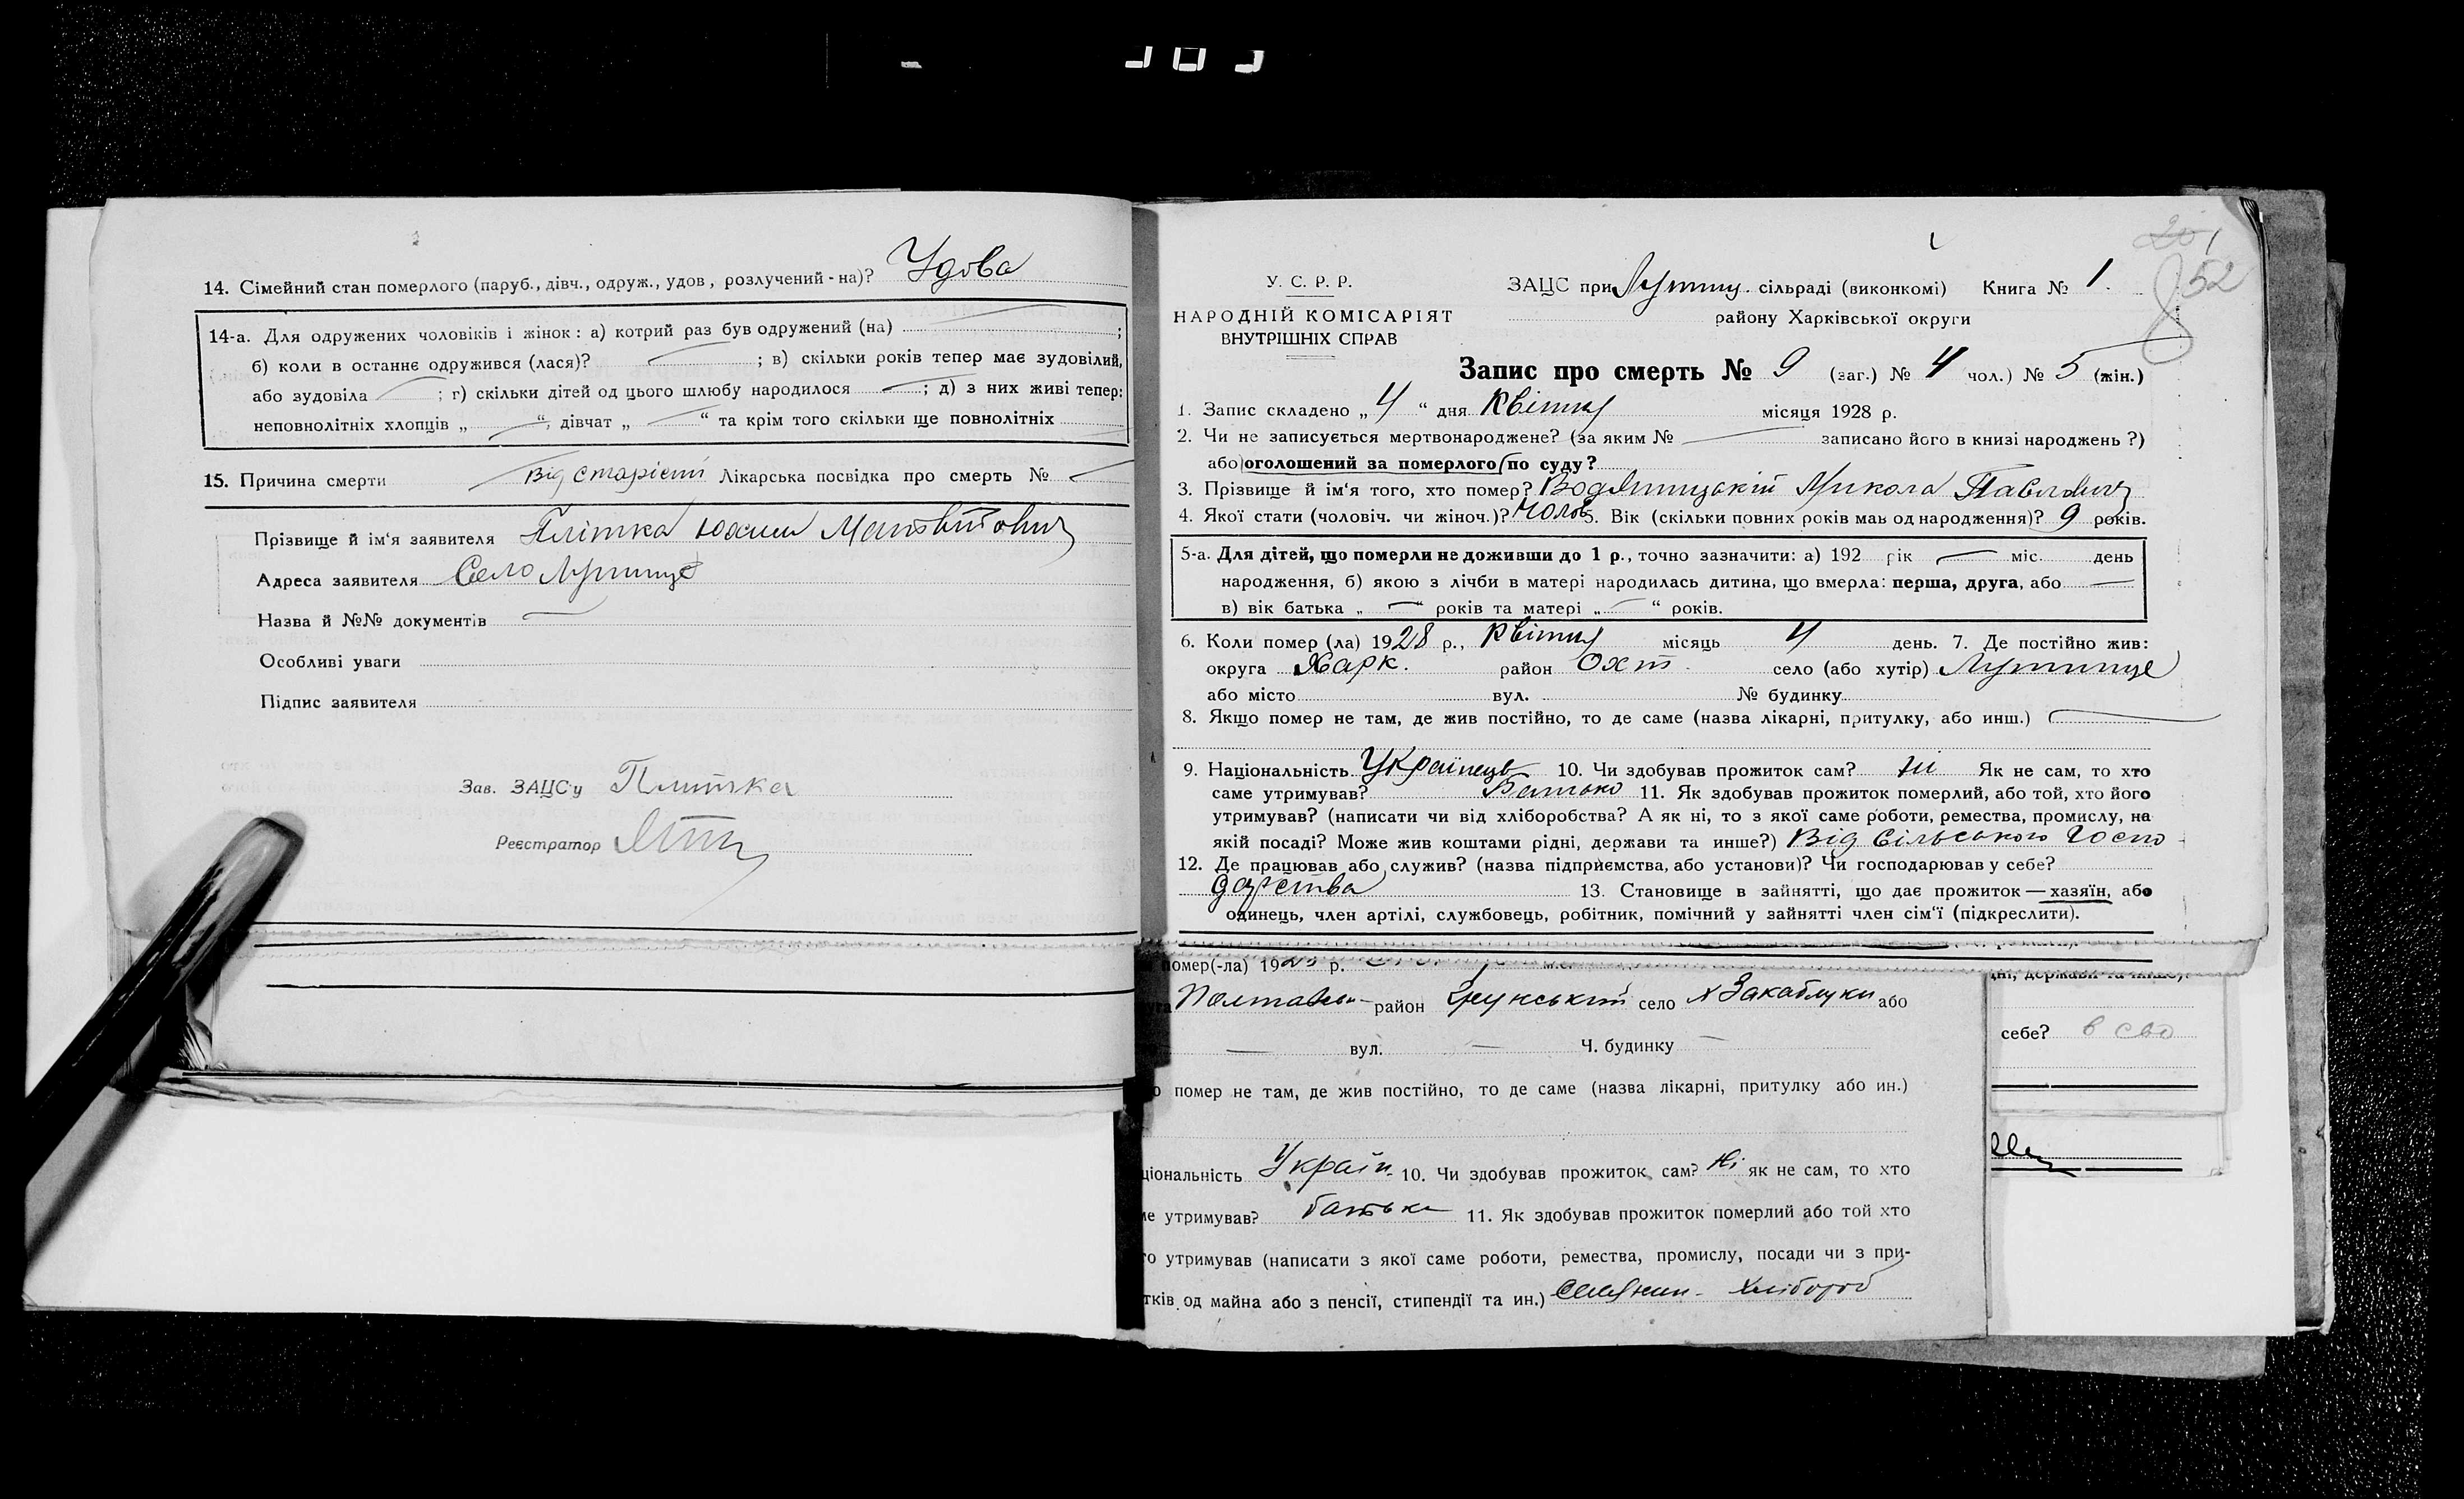 14. Сімейний стан померлого (паруб., дівч., одруж., удов, розлучений-на)? Удова
14-а. Для одружених чоловіків і жінок: а) котрий раз був одружений (на) ;
б) коли в останнє одружився (лася)? ; в) скільки років тепер має зудовілий,
або зудовіла ; г) скільки дітей од цього шлюбу народилося ; д) з них живі тепер:
неповнолітніх хлопців „ “, дівчат „ “ та крім того скільки ще повнолітніх
15. Причина смерти від старісти Лікарська посвідка про смерть №
Прізвище й ім'я заявителя Плітка Юхим Матвійович
Адреса заявителя Село Лутище
Назва й №№ документів
Особливі уваги
Підпис заявителя
Зав. ЗАЦС'у Плитка
Реєстратор
201
52
У. С. Р. Р.
НАРОДНІЙ КОМІСАРІЯТ
ВНУТРІШНІХ СПРАВ
ЗАЦС при Лутищ. сільраді (виконкомі) Книга № 1.
району Харківської округи
Запис про смерть № 9 (заг.) № 4 чол.) № 5 (жін.)
1. Запис складено „4“ дня Квітня місяця 1928 р.
2. Чи не записується мертвонароджене? (за яким № записано його в книзі народжень?)
або оголошений за померлого (по суду?
3. Прізвище й ім'я того, хто помер? Водяницький Микола Павлович
4. Якої стати (чоловіч. чи жіноч.)? Чолов 5. Вік (скільки повних років мав од народження)? 9 років.
5-а. Для дітей, що померли не доживши до 1 р., точно зазначити: а) 192 рік міс. день
народження, б) якою з лічби в матері народилась дитина, що вмерла: перша, друга, або
в) вік батька „ “ років та матері „ “ років.
6. Коли помер (ла) 1928 р., Квітня місяць 4 день. 7. Де постійно жив:
округа Харк. район Охт. село (або хутір) Лутище
або місто вул. № будинку
8. Якщо помер не там, де жив постійно, то де саме (назва лікарні, притулку, або инш.)
9. Національність Українець 10. Чи здобував прожиток сам? ні Як не сам, то хто
саме утримував? Батько 11. Як здобував прожиток померлий, або той, хто його
утримував? (написати чи від хліборобства? А як ні, то з якої саме роботи, ремества, промислу, на
якій посаді? Може жив коштами рідні, держави та инше?) Від сільського Госпо
12. Де працював або служив? (назва підприємства, або установи)? Чи господарював у себе?
дарства 13. Становище в зайнятті, що дає прожиток — хазяїн, або
одинець, член артілі, службовець, робітник, помічний у зайнятті член сім'ї (підкреслити).
помер(-ла) 19 р.
Полтавськ район село Закаблуки або
вул. Ч. будинку
помер не там, де жив постійно, то де саме (назва лікарні, притулку або ин.)
ціональність Україн. 10. Чи здобував прожиток сам? Ні як не сам, то хто
утримував? батько 11. Як здобував прожиток померлий або той хто
го утримував (написати з якої саме роботи, ремества, промислу, посади чи з при-
тків од майна або з пенсії, стипендії та ин.) Селянин - хлібороб
себе? в сво